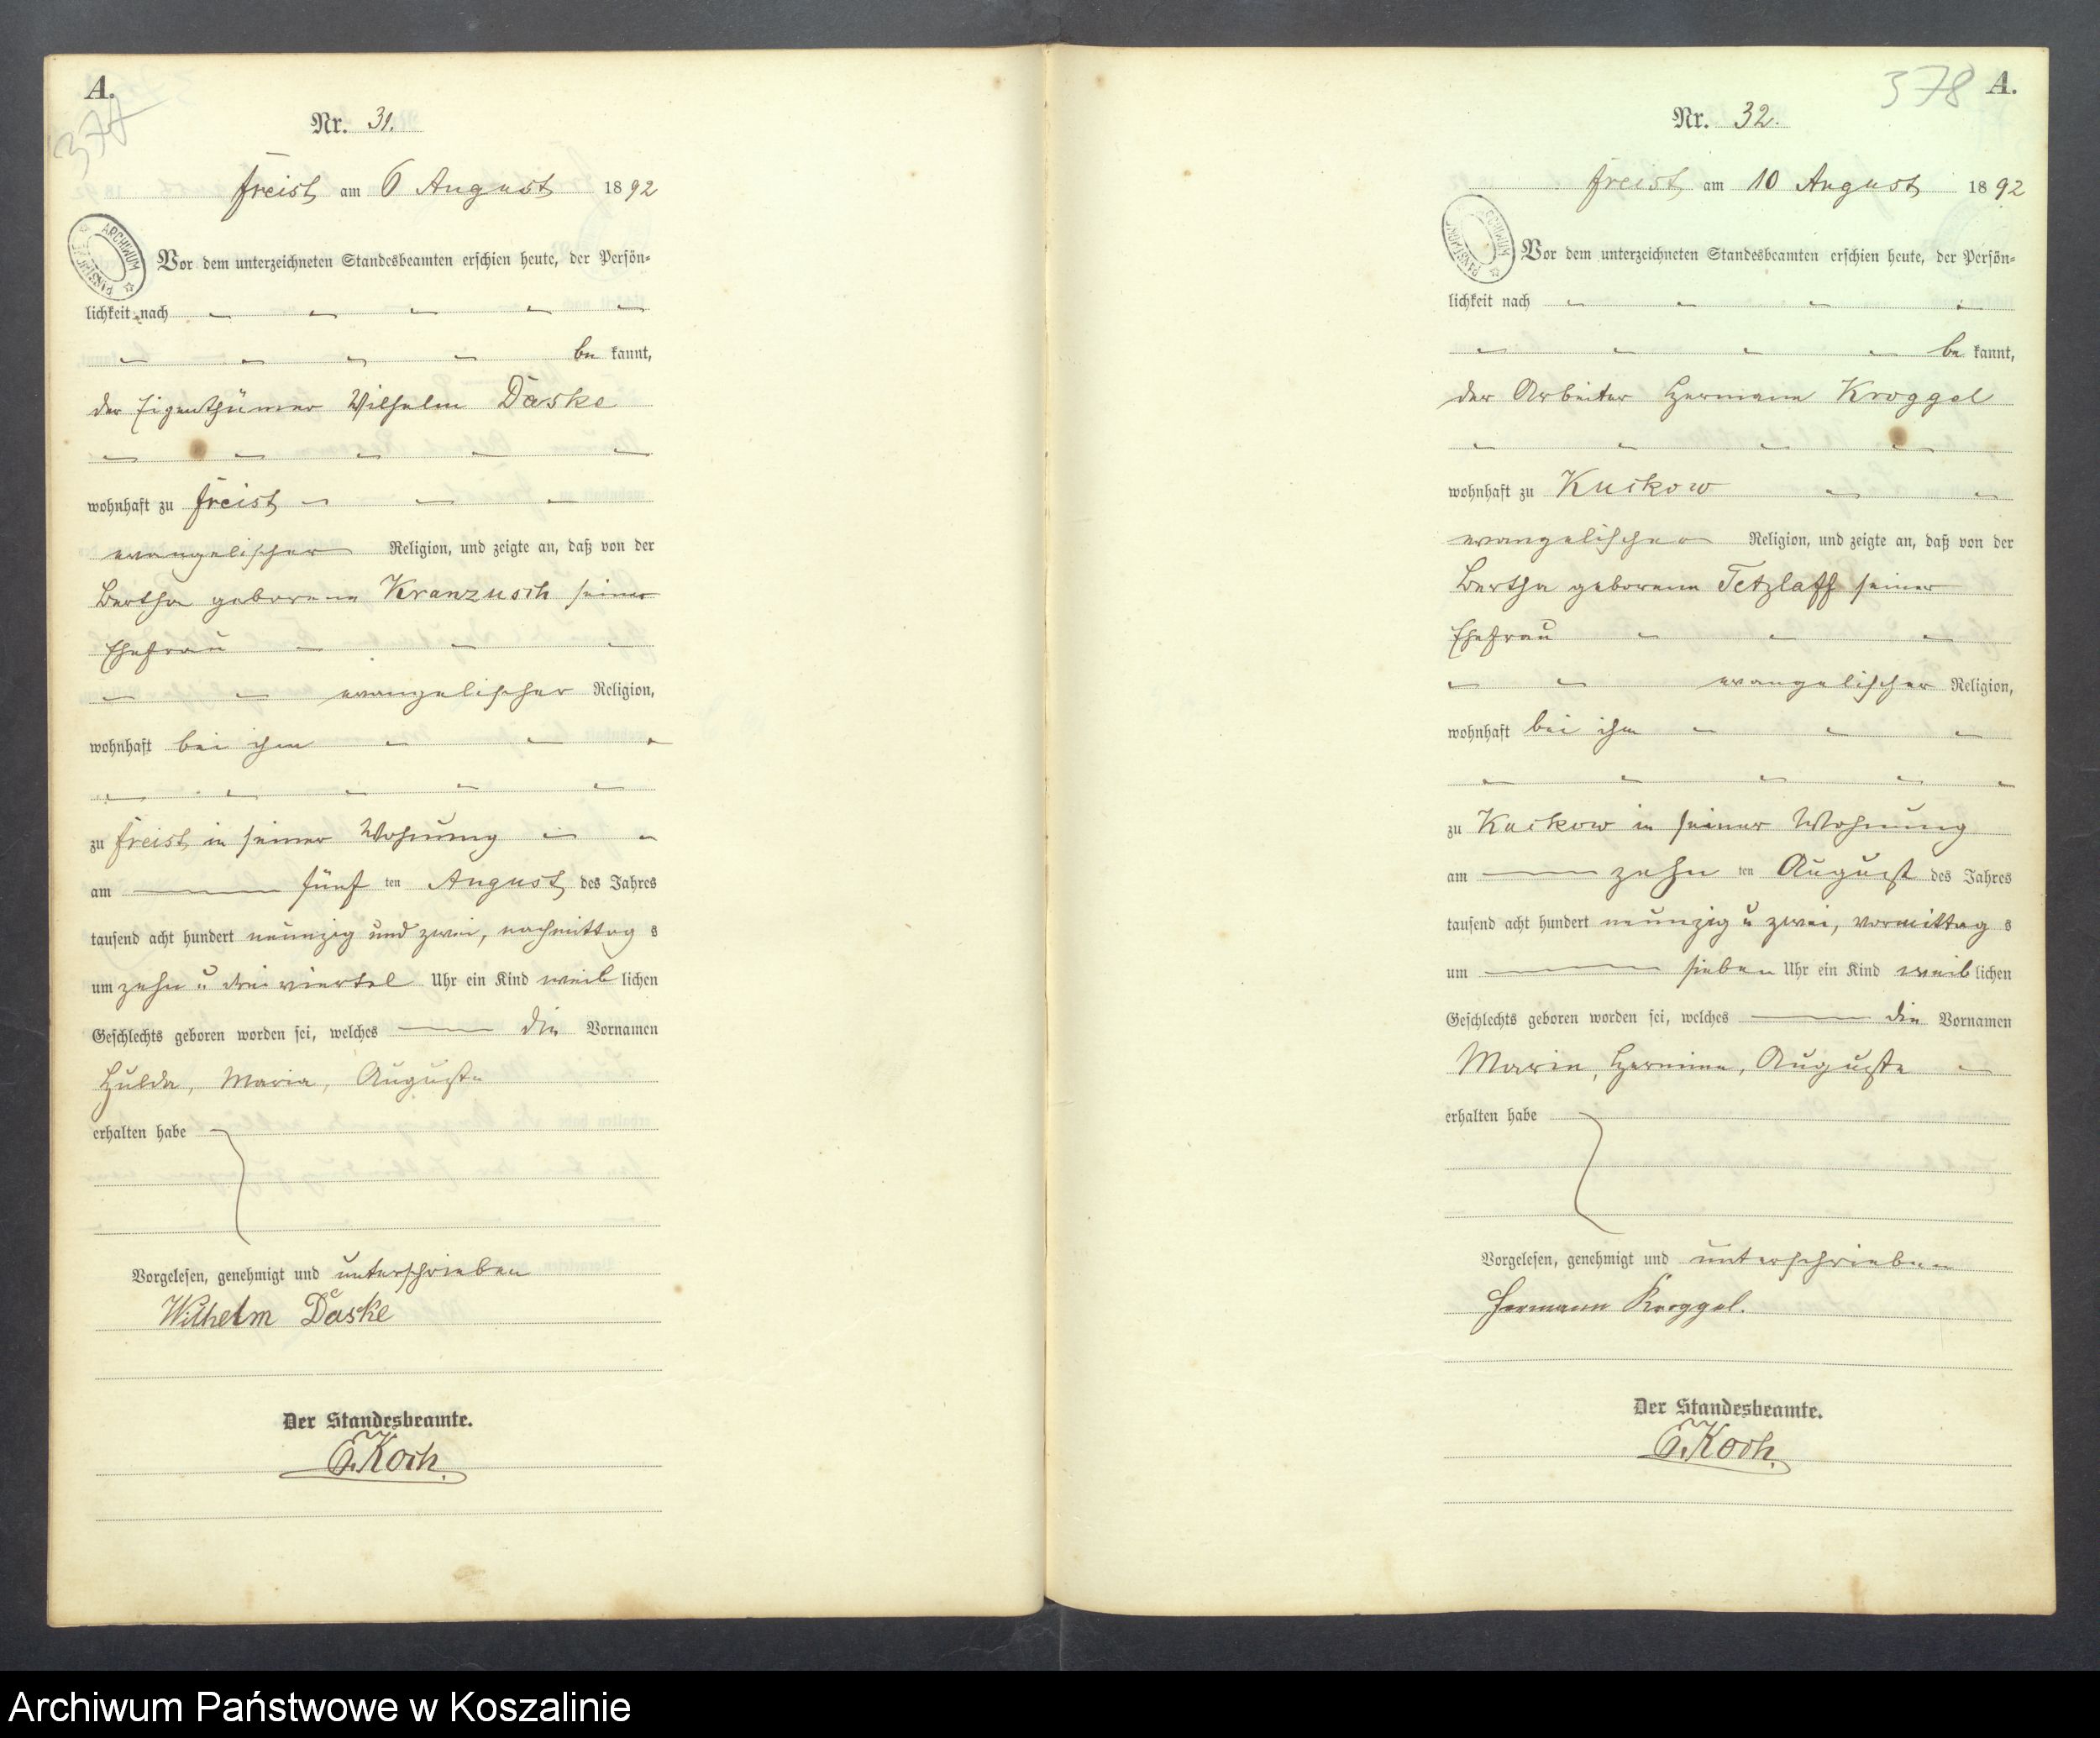 A.
377
Nr. 31.
Freist am 6 August 1892
ARCHIWUM PAŃSTWOWE
Vor dem unterzeichneten Standesbeamten erschien heute, der Persön-
lichkeit nach
be kannt,
der Eigenthümer Wilhelm Däske
wohnhaft zu Freist
evangelischer Religion, und zeigte an, daß von der
Bertha geborene Kranzusch seiner
Ehefrau
evangelischer Religion,
wohnhaft bei ihm
zu Freist in seiner Wohnung
am fünf ten August des Jahres
tausend acht hundert neunzig und zwei, nachmittag s
um zehn u dreiviertel Uhr ein Kind weib lichen
Geschlechts geboren worden sei, welches die Vornamen
Hulda, Maria, Auguste
erhalten habe
Vorgelesen, genehmigt und unterschrieben
Wilhelm Däske
Der Standesbeamte.
E. Koch.
378 A.
Nr. 32.
Freist am 10 August 1892
ARCHIWUM PAŃSTWOWE
Vor dem unterzeichneten Standesbeamten erschien heute, der Persön-
lichkeit nach
be kannt,
der Arbeiter Hermann Kroggel
wohnhaft zu Kuskow
evangelischer Religion, und zeigte an, daß von der
Bertha geborene Tetzlaff seiner
Ehefrau
evangelischer Religion,
wohnhaft bei ihm
zu Kuskow in seiner Wohnung
am zehn ten August des Jahres
tausend acht hundert neunzig u zwei, vormittag s
um sieben Uhr ein Kind weib lichen
Geschlechts geboren worden sei, welches die Vornamen
Marie, Hermine, Auguste
erhalten habe
Vorgelesen, genehmigt und unterschrieben
Hermann Kroggel.
Der Standesbeamte.
E. Koch.
Archiwum Państwowe w Koszalinie